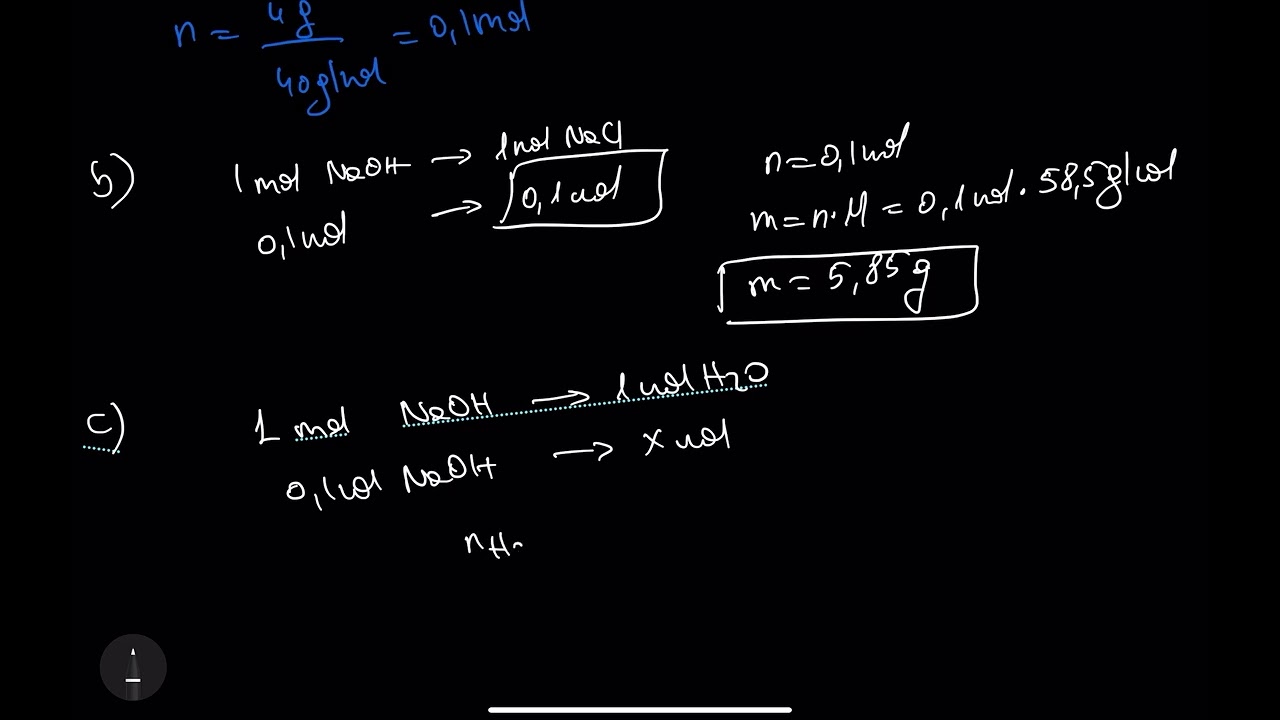 n = 4g / 40g/mol = 0,1mol
b) 1 mol NaOH → 1mol NaCl
0,1mol → 0,1mol
n = 0,1mol
m = n·M = 0,1mol · 58,5g/mol
m = 5,85g
c) 1 mol NaOH → 1 mol H2O
0,1mol NaOH → x mol
nH